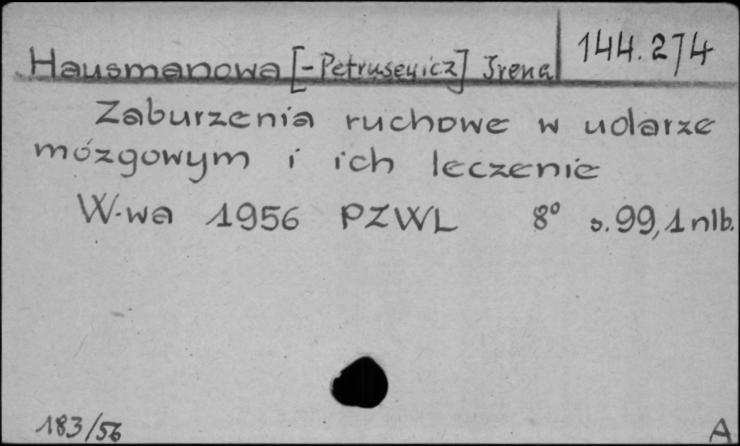 144.274
Hausmanowa [-Petrusewicz] Irena
Zaburzenia ruchowe w udarze
mózgowym i ich leczenie
W-wa 1956 PZWL 8° s. 99, 1 nlb.
183/56
A